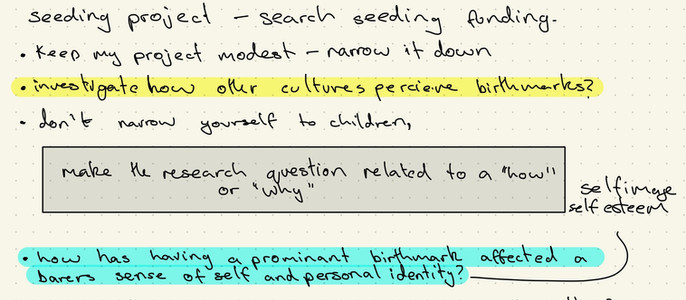 seeding project – search seeding funding.
• Keep my project modest – narrow it down
• investigate how other cultures percieve birthmarks?
• don't narrow yourself to children,
make the research question related to a "how"
or "why"
selfimage
self esteem
• how has having a prominant birthmark affected a
barers sense of self and personal identity?